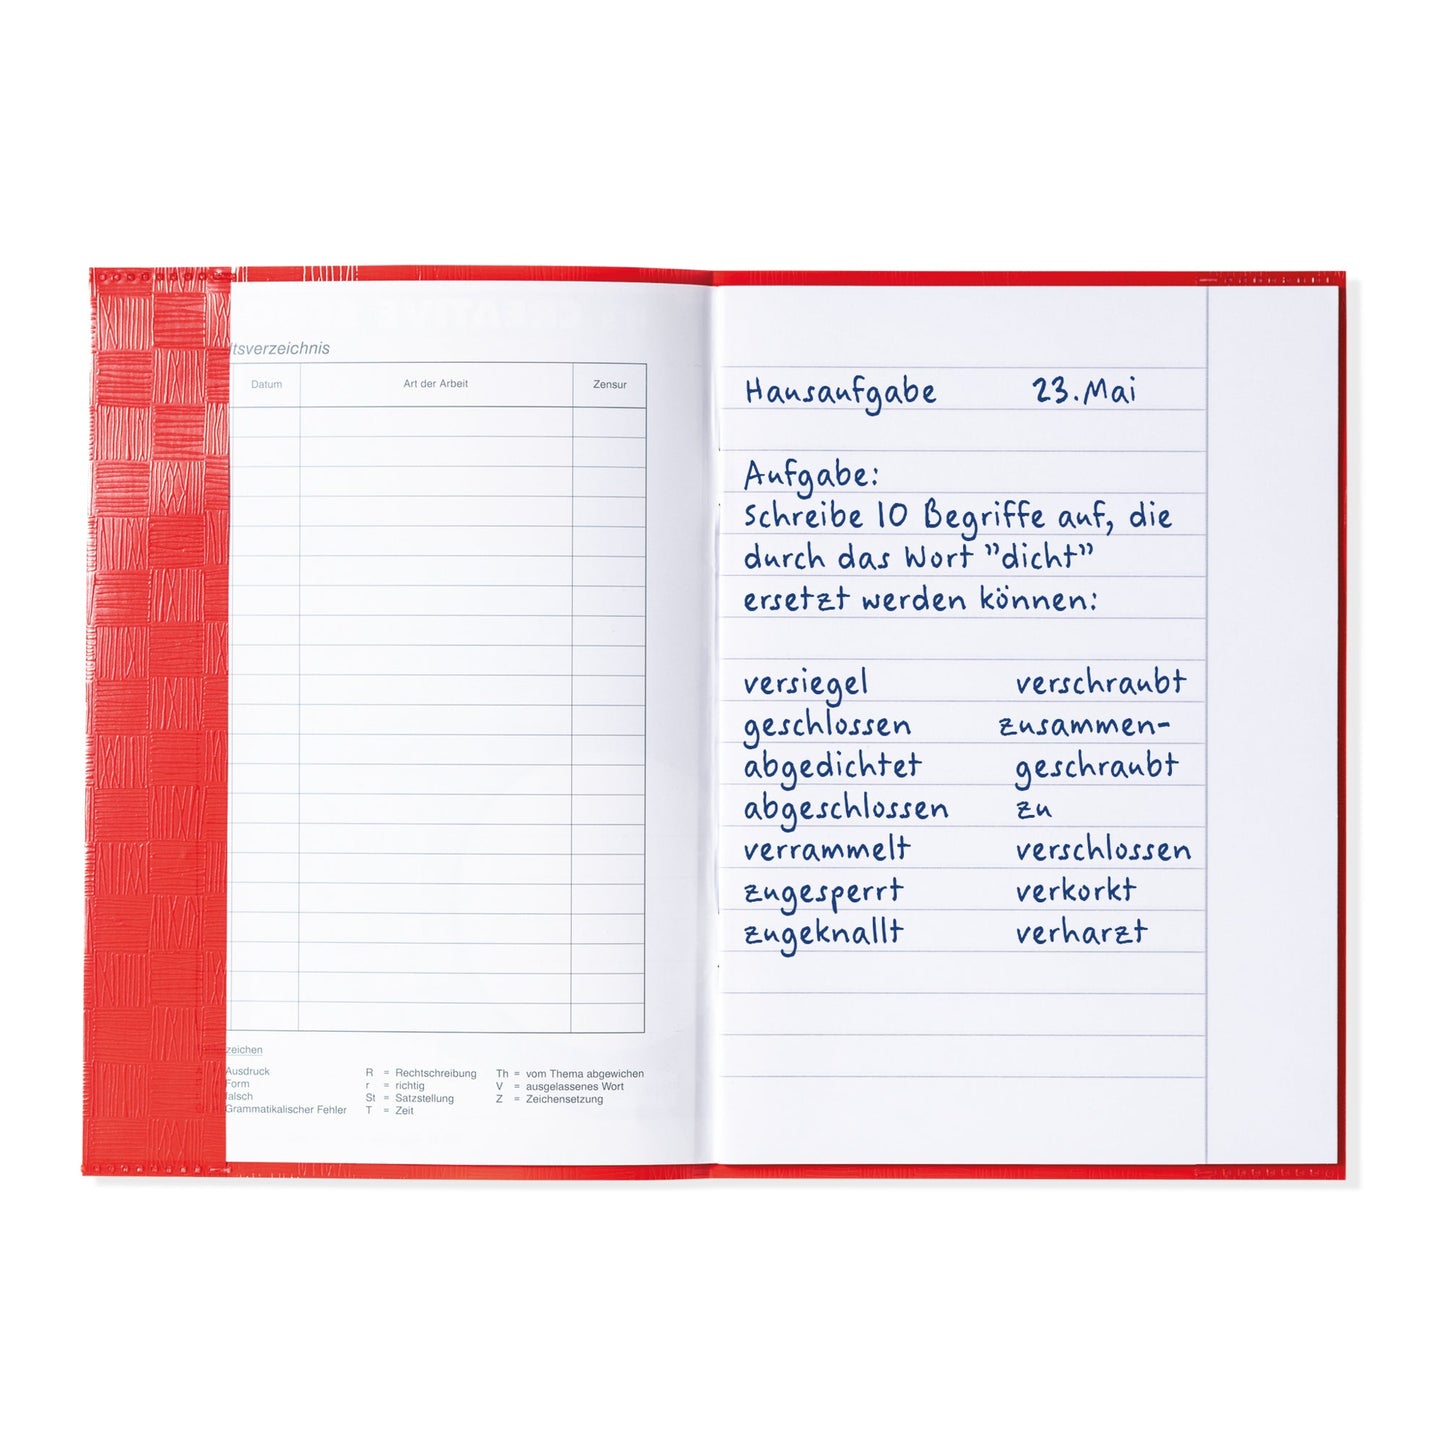 tsverzeichnis
Datum Art der Arbeit Zensur
zeichen
Ausdruck R = Rechtschreibung Th = vom Thema abgewichen
Form r = richtig V = ausgelassenes Wort
falsch St = Satzstellung Z = Zeichensetzung
Grammatikalischer Fehler T = Zeit
Hausaufgabe 23. Mai
Aufgabe:
Schreibe 10 Begriffe auf, die
durch das Wort "dicht"
ersetzt werden können:
versiegel verschraubt
geschlossen zusammen-
abgedichtet geschraubt
abgeschlossen zu
verrammelt verschlossen
zugesperrt verkorkt
zugeknallt verharzt